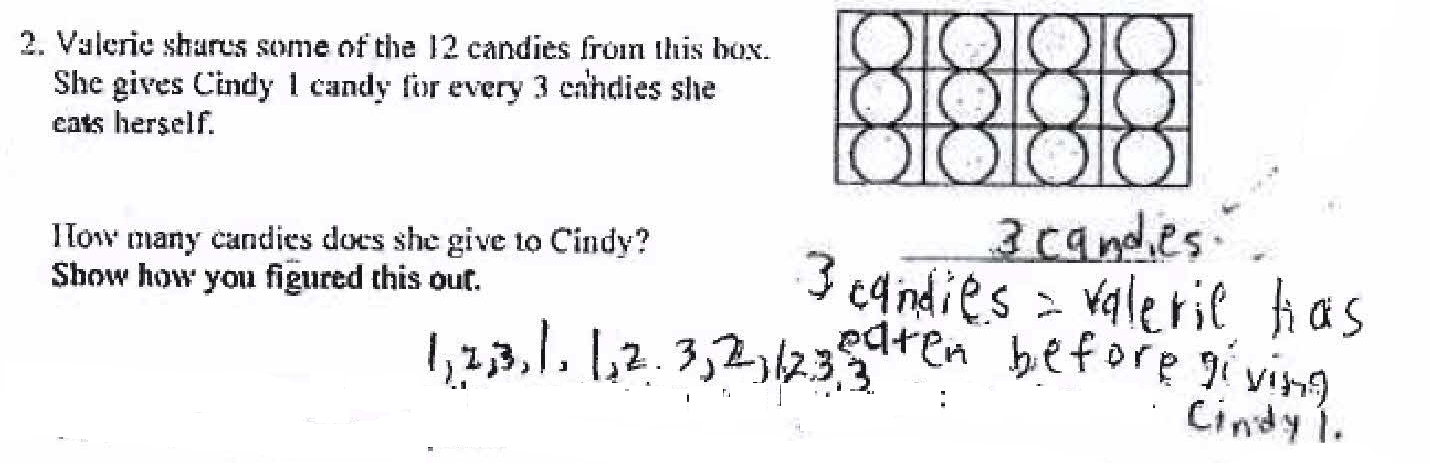 2. Valerie shares some of the 12 candies from this box.
She gives Cindy 1 candy for every 3 candies she
eats herself.
How many candies does she give to Cindy?
Show how you figured this out.
3 candies.
3 candies = Valerie has
eaten before giving
Cindy 1.
1,2,3,1, 1,2.3,2,1,2.3,3